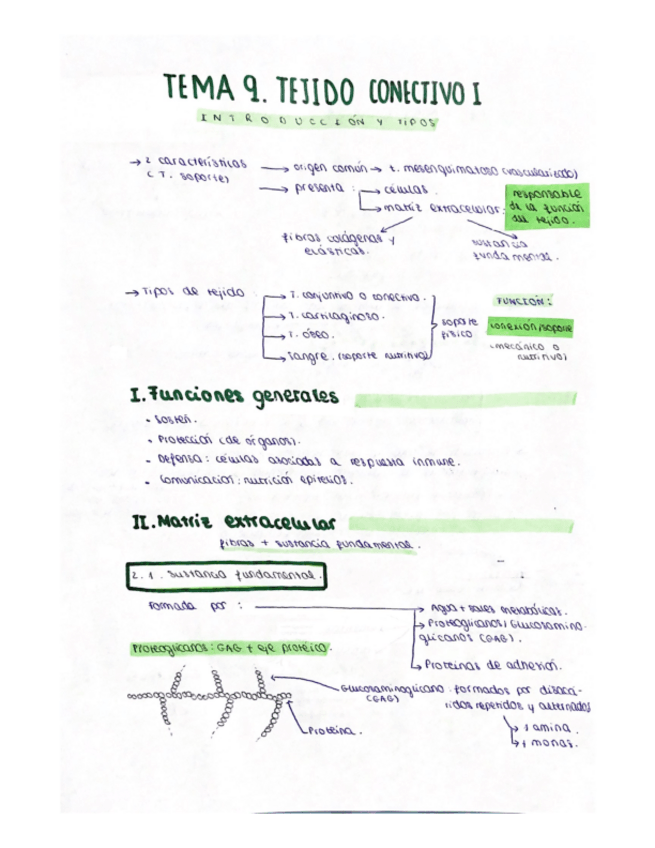 TEMA 9. TEJIDO CONECTIVO I
INTRODUCCIÓN Y TIPOS
→ 2 características → origen común → t. mesenquimatoso (vascularizado)
(T. soporte) → presenta : → células.
→ matriz extracelular. responsable de la función del tejido.
fibras colágenas y elásticas.
sustancia fundamental.
→ Tipos de tejido → T. conjuntivo o conectivo.
→ T. cartilaginoso.
→ T. óseo.
→ Sangre. (soporte nutritivo)
soporte físico
FUNCIÓN:
conexión/soporte
(mecánico o nutritivo)
I. Funciones generales
• Sostén.
• Protección (de órganos).
• Defensa: células asociadas a respuesta inmune.
• Comunicación: nutrición epitelios.
II. Matriz extracelular
fibras + sustancia fundamental.
2.1. Sustancia fundamental.
Formada por : → Agua + sales metabólicas.
→ Proteoglicanos/Glucosaminoglicanos (GAG).
→ Proteínas de adhesión.
Proteoglicanos: GAG + eje proteico.
Glucosaminoglicano: formados por disacáridos repetidos y alternados
(GAG)
→ 1 amina.
→ 1 monos.
Proteína.